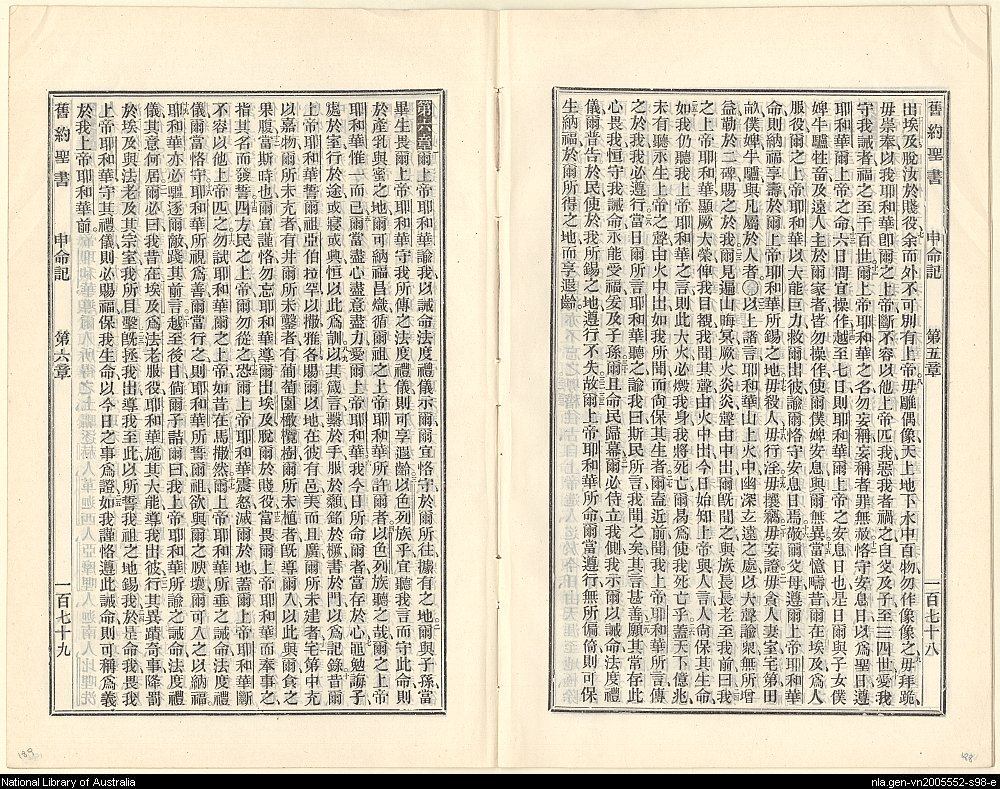 舊約聖書 申命記 第五章 一百七十八
出埃及脫汝於賤役余而外不可別有上帝毋雕偶像天上地下水中百物勿作像像之毋拜跪
毋崇奉以我耶和華即爾之上帝斷不容以他上帝匹我惡我者禍之自父及子至三四世愛我
守我誡者福之至于百世爾上帝耶和華之名勿妄稱妄稱者罪無赦恪守安息日以為聖日遵
耶和華爾上帝之命六日間宜操作越至七日則耶和華爾上帝之安息日也是日爾與子女僕
婢牛驢牲畜及遠人主於爾家者皆勿操作使爾僕婢安息與爾無異當憶疇昔爾在埃及為人
服役爾之上帝耶和華以大能巨力救爾出彼諭爾恪守安息日焉敬爾父母遵爾上帝耶和華
命則納福享壽於爾上帝耶和華所錫之地毋殺人毋行淫毋攘竊毋妄證毋貪人妻室宅第田
畝僕婢牛驢與凡屬於人者以上諸言耶和華山上火中幽深玄遠之處以大聲諭眾無所增
益勒於二碑賜之於我爾見遍山晦冥厥火炎炎聲由中出爾既聞之與族長長老至我前曰我
之上帝耶和華顯厥大榮俾我目覩我聞其聲由火中出今日始知上帝與人言人尚保其生命
如我仍聽我上帝耶和華之言則此大火必燬我身我將死亡爾曷為使我死亡乎蓋天下億兆
未有聽永生上帝之聲由火中出如我所聞而尚保其生者爾盍近前聞我上帝耶和華所言傳
之於我我必遵行當日爾所言耶和華聽之諭我曰斯民所言我聞之矣其言甚善願其常存此
心畏我恒守我誡命永能受福爰及子孫爾且命民歸幕爾必侍立我側我示爾以誡命法度禮
儀爾昔告於民使於我所錫之地遵行不失故爾上帝耶和華所命爾當遵行無所偏倚則可保
生納福於爾所得之地而享遐齡
第十六章爾上帝耶和華諭我以誡命法度禮儀示爾爾宜恪守於爾所往據有之地爾與子孫當
畢生畏爾上帝耶和華守我所傳之法度禮儀則可享遐齡以色列族乎宜聽我言而守此命則
於產乳與蜜之地爾可納福昌熾循爾祖之上帝耶和華所許爾者以色列族聽之哉爾之上帝
耶和華惟一而已爾當盡心盡意盡力愛爾上帝耶和華我今日所命爾者當存於心誨勉子
處於室行於途或寢或興恒以此為訓以其箴言繫於手服於顙銘於橛書於門以為記錄昔爾
上帝耶和華誓爾祖亞伯拉罕以撒雅各賜爾以地在彼有邑美而且廣爾所未建者宅第中充
以嘉物爾所未充者有井爾所未鑿者有葡萄園橄欖樹爾所未植者既導爾入以此與爾食之
果腹當斯時也爾宜謹恪勿忘耶和華導爾出埃及脫爾於賤役當畏爾上帝耶和華而奉事之
指其名而發誓四方民之上帝爾勿從之恐爾上帝耶和華震怒滅爾於地蓋爾上帝耶和華斷
不容以他上帝匹之勿試耶和華爾之上帝如昔在馬撒然爾上帝耶和華所垂之誡命法度禮
儀爾當恪守耶和華所視為善爾當行之則耶和華所誓爾祖欲與爾之腴壤爾可入之以納福
耶和華亦必驅逐爾敵踐其前言越至後日倘爾子詰爾曰我上帝耶和華所諭之誡命法度禮
儀其意何居爾必曰我昔在埃及為法老服役耶和華施其大能導我出彼行其異蹟奇事降罰
於埃及與法老及其宗室我所目擊既拯我出導我至此以所誓我祖之地錫我於是命我畏我
上帝耶和華守其禮儀則必賜福保我生命以今日之事為證如我謹恪遵此誡命則可稱為義
於我上帝耶和華前
舊約聖書 申命記 第六章 一百七十九
National Library of Australia
nla.gen-vn2005552-s98-e